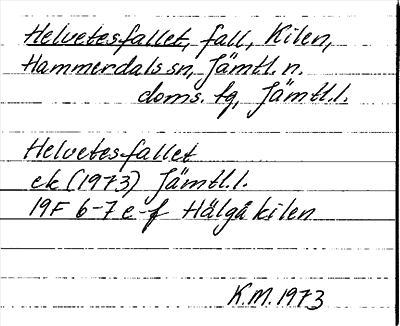 Helvetesfallet, fall, Kilen,
Hammerdals sn, Jämtl. n.
doms. tg, Jämtl. l.
Helvetesfallet
ek (1973) Jämtl. l.
19F 6-7 e-f Hälgåkilen
K.M. 1973